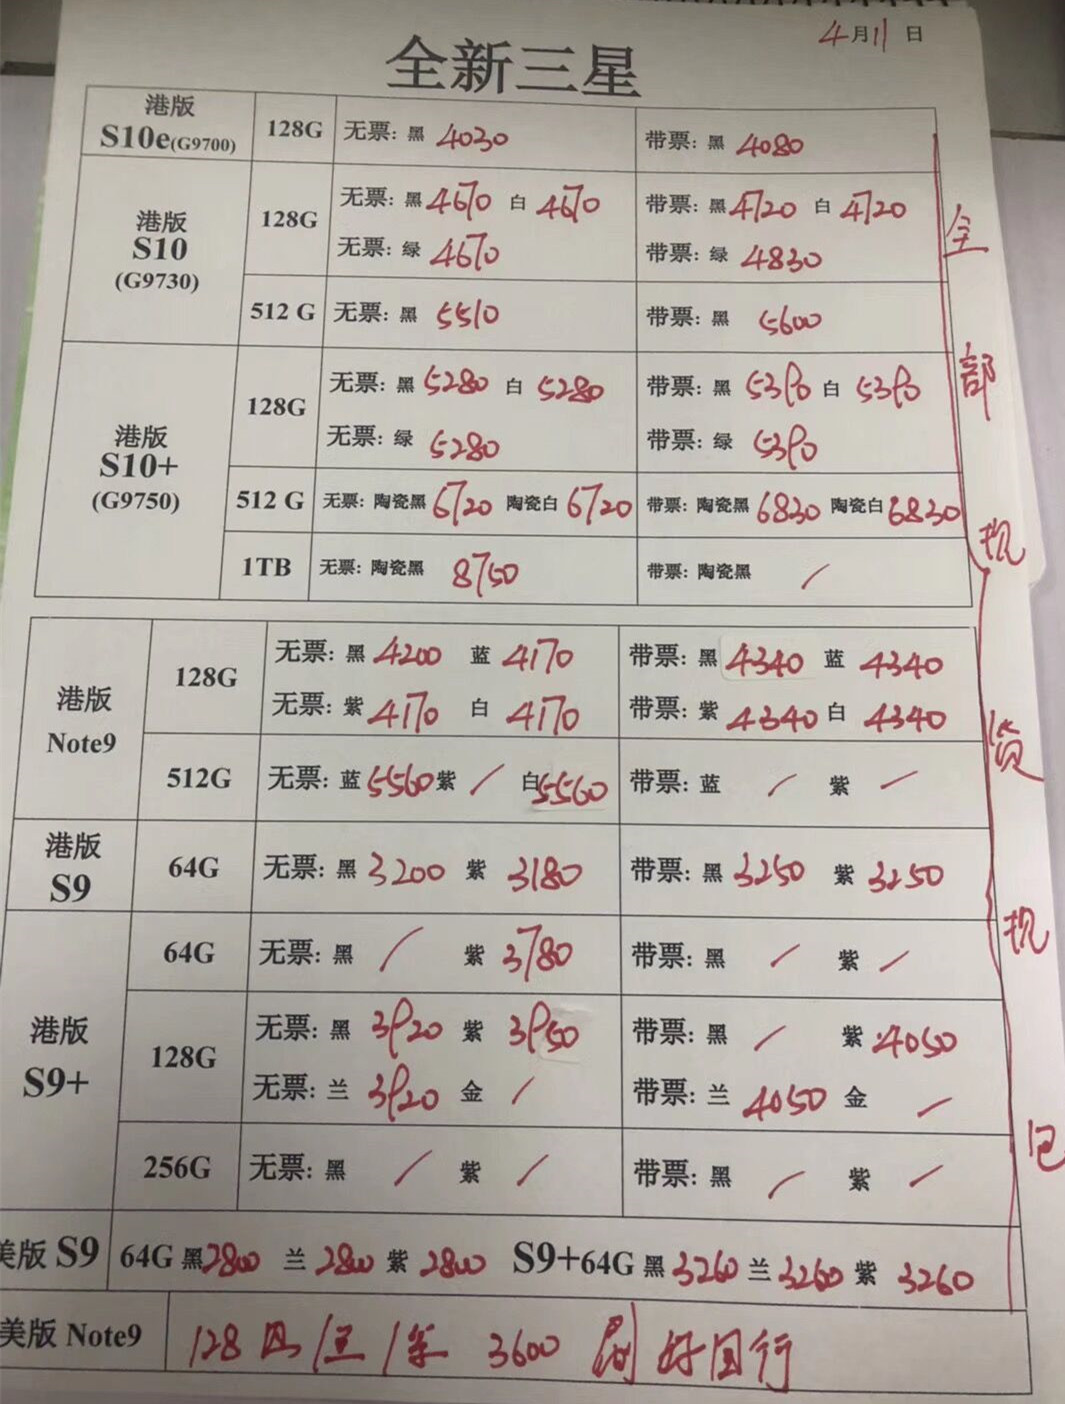 4月11日
全新三星
港版 S10e(G9700) 128G 无票: 黑 4030 带票: 黑 4080
港版 S10 (G9730) 128G 无票: 黑 4670 白 4670 带票: 黑 4720 白 4720
无票: 绿 4670 带票: 绿 4830
512 G 无票: 黑 5510 带票: 黑 5600
港版 S10+ (G9750) 128G 无票: 黑 5280 白 5280 带票: 黑 5390 白 5390
无票: 绿 5280 带票: 绿 5390
512 G 无票: 陶瓷黑 6720 陶瓷白 6720 带票: 陶瓷黑 6830 陶瓷白 6830
1TB 无票: 陶瓷黑 8750 带票: 陶瓷黑 /
港版 Note9 128G 无票: 黑 4200 蓝 4170 带票: 黑 4340 蓝 4340
无票: 紫 4170 白 4170 带票: 紫 4340 白 4340
512G 无票: 蓝 5560 紫 / 白 5560 带票: 蓝 / 紫 /
港版 S9 64G 无票: 黑 3200 紫 3180 带票: 黑 3250 紫 3250
港版 S9+ 64G 无票: 黑 / 紫 3780 带票: 黑 / 紫 /
128G 无票: 黑 3920 紫 3950 带票: 黑 / 紫 4050
无票: 兰 3920 金 / 带票: 兰 4050 金 /
256G 无票: 黑 / 紫 / 带票: 黑 / 紫 /
美版 S9 64G 黑 2800 兰 2800 紫 2800 S9+64G 黑 3260 兰 3260 紫 3260
美版 Note9 128 3600 刷好国行
全部现货现